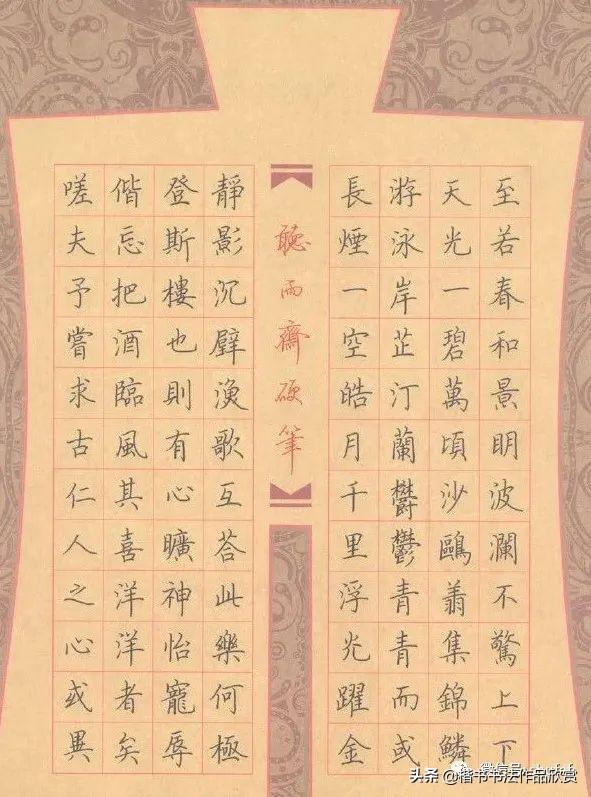 至若春和景明波瀾不驚上下
天光一碧萬頃沙鷗翔集錦鱗
游泳岸芷汀蘭鬱鬱青青而或
長煙一空皓月千里浮光躍金
聽雨齋硬筆
靜影沉璧漁歌互答此樂何極
登斯樓也則有心曠神怡寵辱
偕忘把酒臨風其喜洋洋者矣
嗟夫予嘗求古仁人之心或異
微信号
头条 @楷书书法作品欣赏